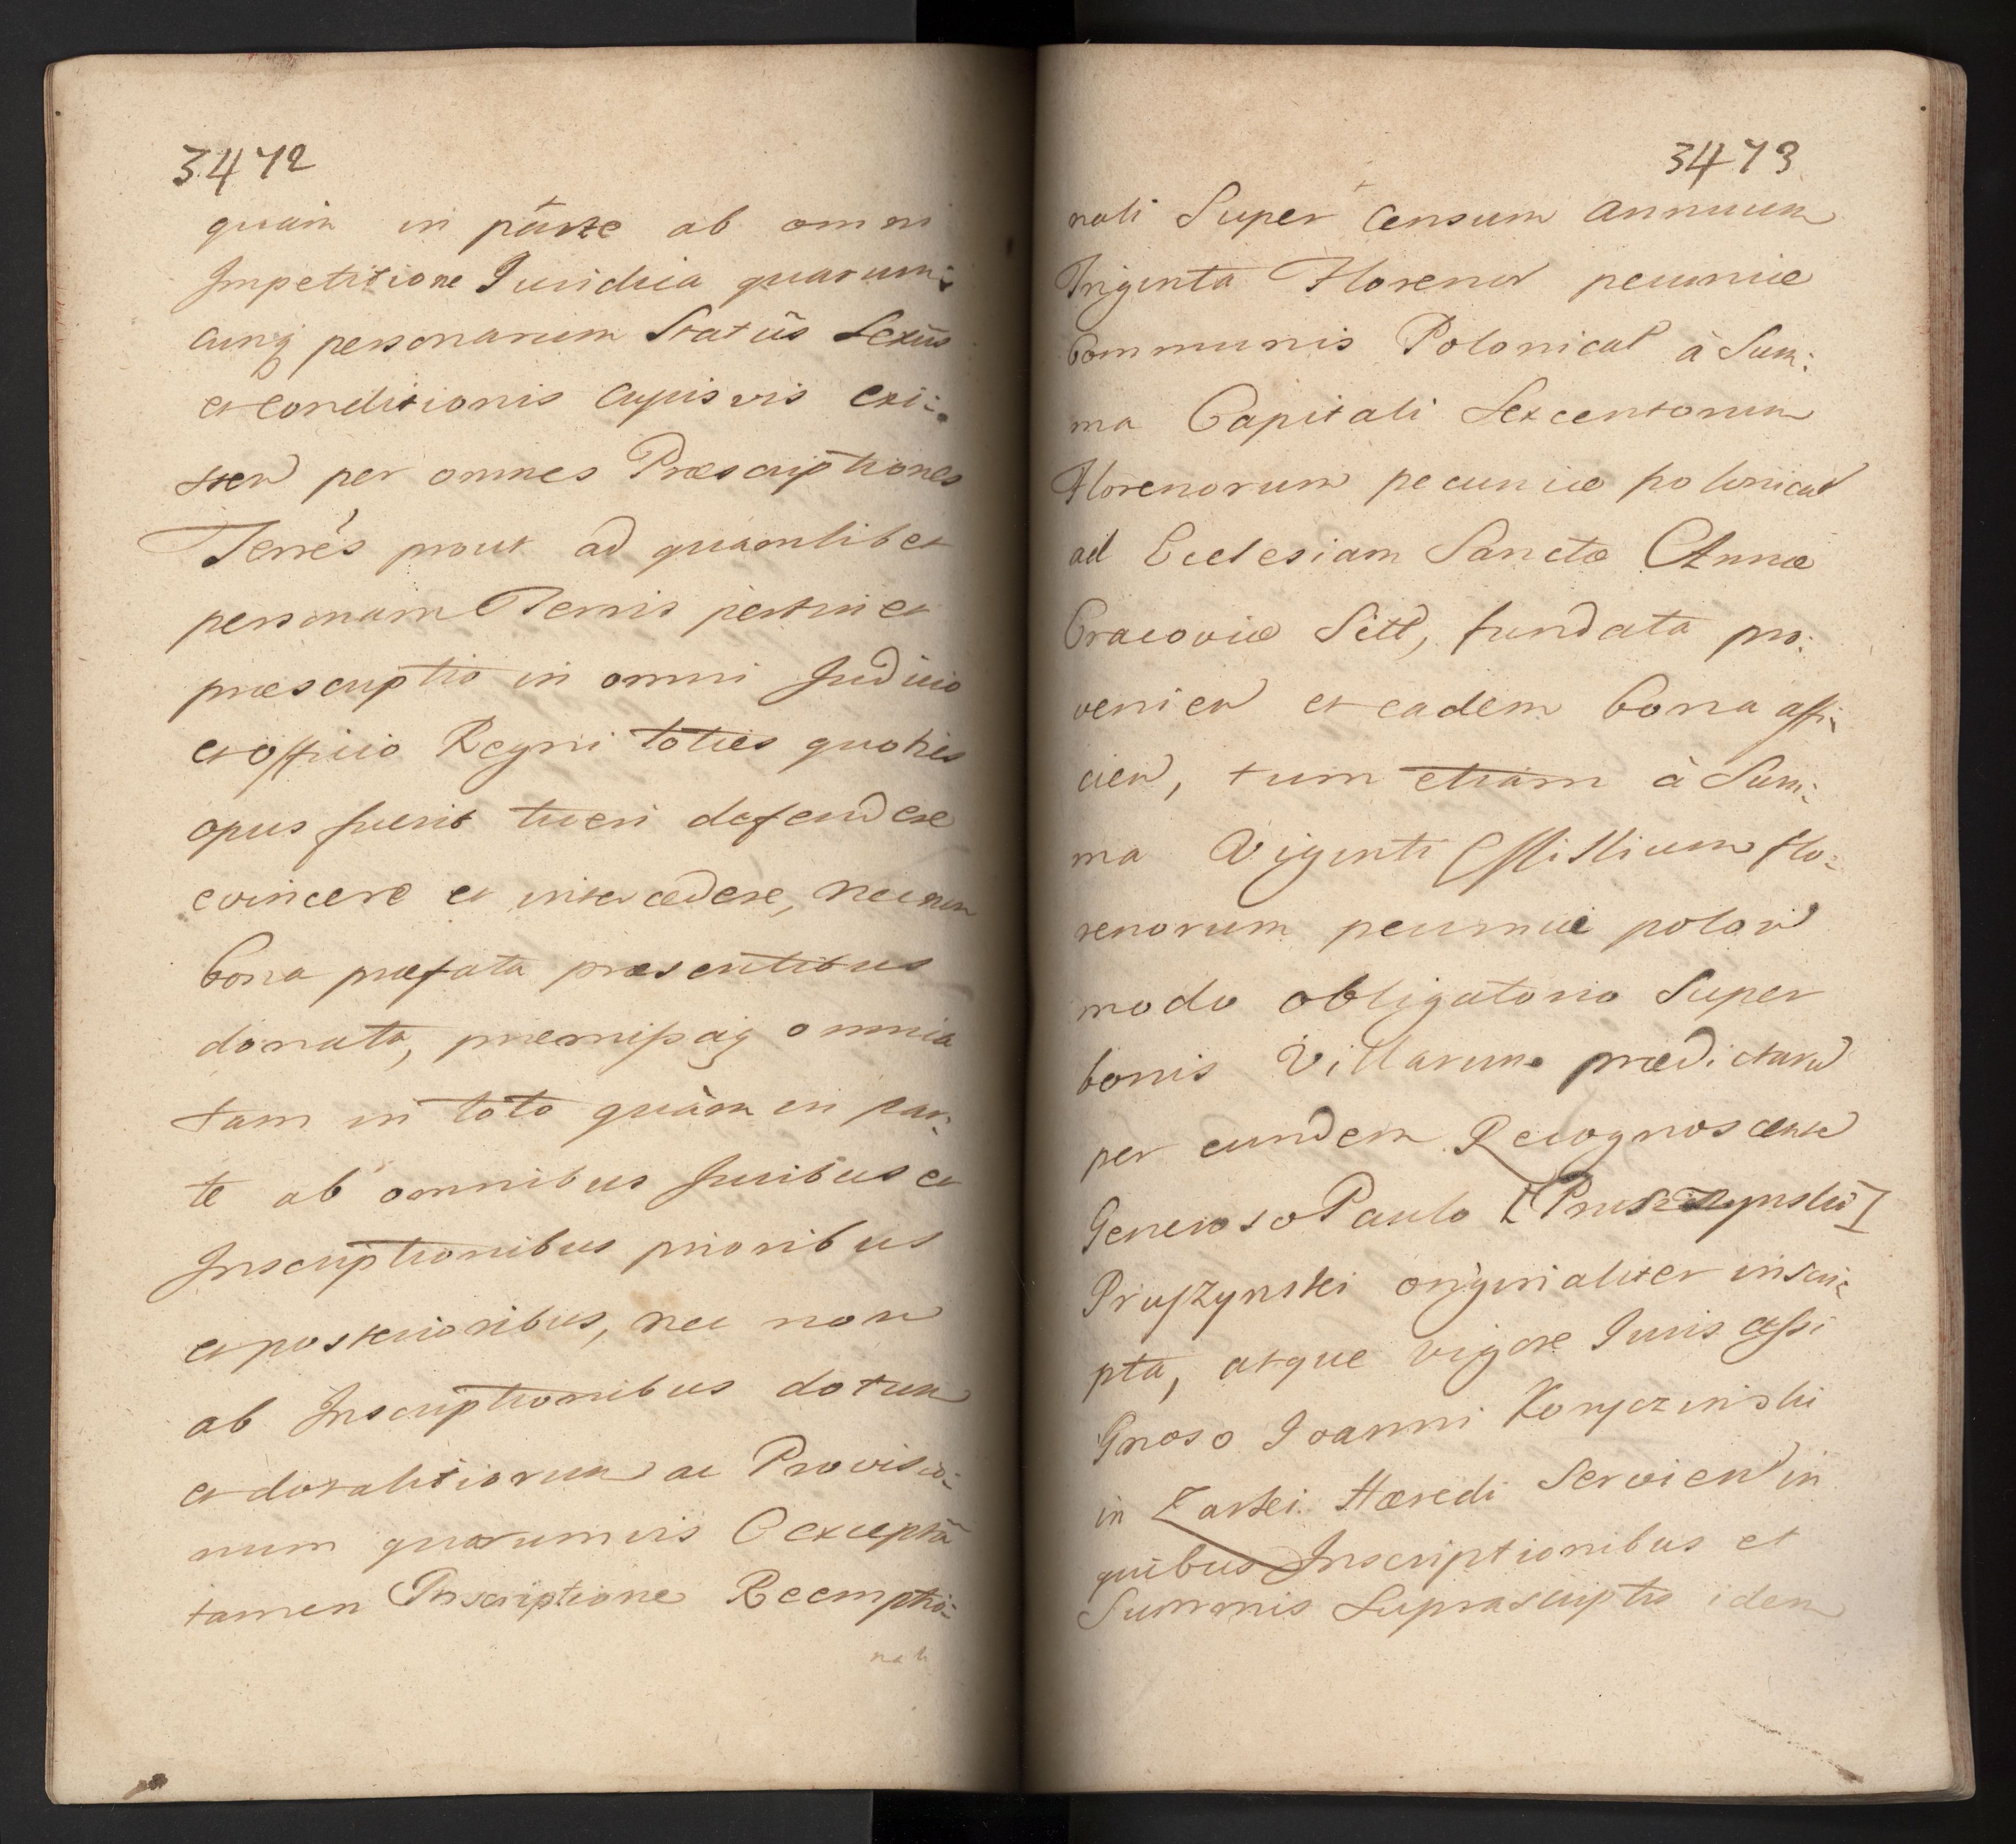 3472
quam in parte ab omni
Impetitione Juridica quarum:
cunq personarum Statûs Sexûs
et conditionis cujusvis exi:
sten per omnes Præscriptiones
Terrés prout ad quamlibet
personam Terris pertinet
præscriptio in omni Judicio
et officio Regni toties quoties
opus fuerit tueri defendere
evincere et intercedere, necnon
bona præfata præsentibus
donata, præmissaq omnia
tam in toto quàm in par:
te ab omnibus Juribus et
Inscriptionibus prioribus
et posterioribus, nec non
ab Inscriptionibus dotum
et dotalitiorum ac Provisio:
num quorumvis Cexceptâ
tamen Inscriptione Reemptio:
nali
3473
nali Super Censum Annuum
Triginta Floren pecuniæ
Communis Polonical à Sum:
ma Capitali Sexcentorum
Florenorum pecuniæ polonical
ad Ecclesiam Sanctæ Annæ
Cracoviæ Sitt, fundata pro:
venien et eadem bona affi:
cien, tum etiam à Sum:
ma Viginti Millium Flo:
renorum pecuniæ polon
modo obligatorio Super
bonis Villarum prædictaru
per eundem Recognoscente
Generoso Paulo [Pruszczynski]
Pruszynski originaliter inscri:
pta, atque vigore Juris cessi
Gnoso Joanni Koryczinski
in Zarki Hæredi Servien in
quibus Inscriptionibus et
Summis Suprascriptis idem